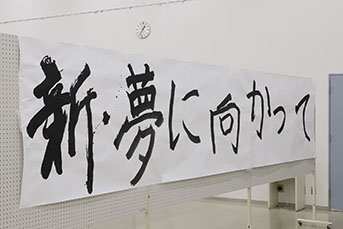 新・夢に向かって